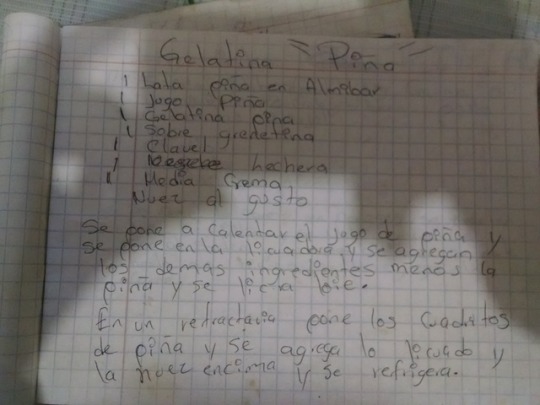 Gelatina "Piña"
1 Lata piña en Almibar
1 Jugo Piña
1 Gelatina piña
1 Sobre grenetina
1 Clavel
1 lechera
1 Media Crema
Nuez al gusto
Se pone a calentar el jugo de piña y
se pone en la licuadora y se agregan
los demas ingredientes menos la
piña y se licua
En un refractario pone los cuadritos
de piña y se agrega lo licuado y
la nuez encima y se refrigera.